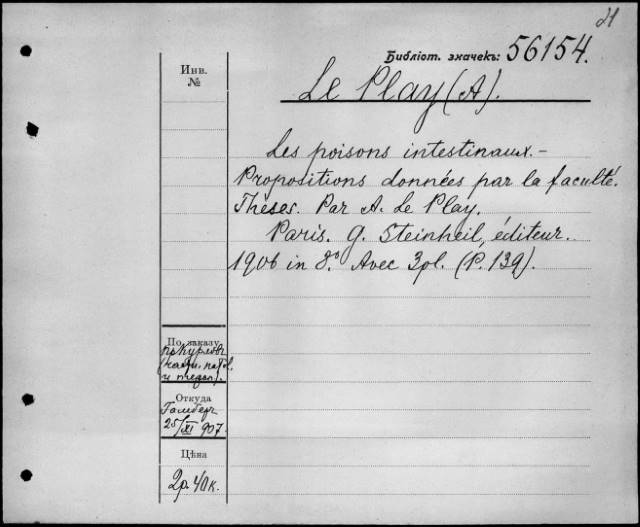 21
Библіот. значекъ: 56154.
Инв.
№
Le Play (A).
Les poisons intestinaux. -
Propositions données par la faculté.
Thèses. Par A. Le Play.
Paris. G. Steinheil, éditeur.
1906 in 8.° Avec 3 pl. (P. 139).
По заказу
Откуда
25/XI 907.
Цѣна
2р. 40к.